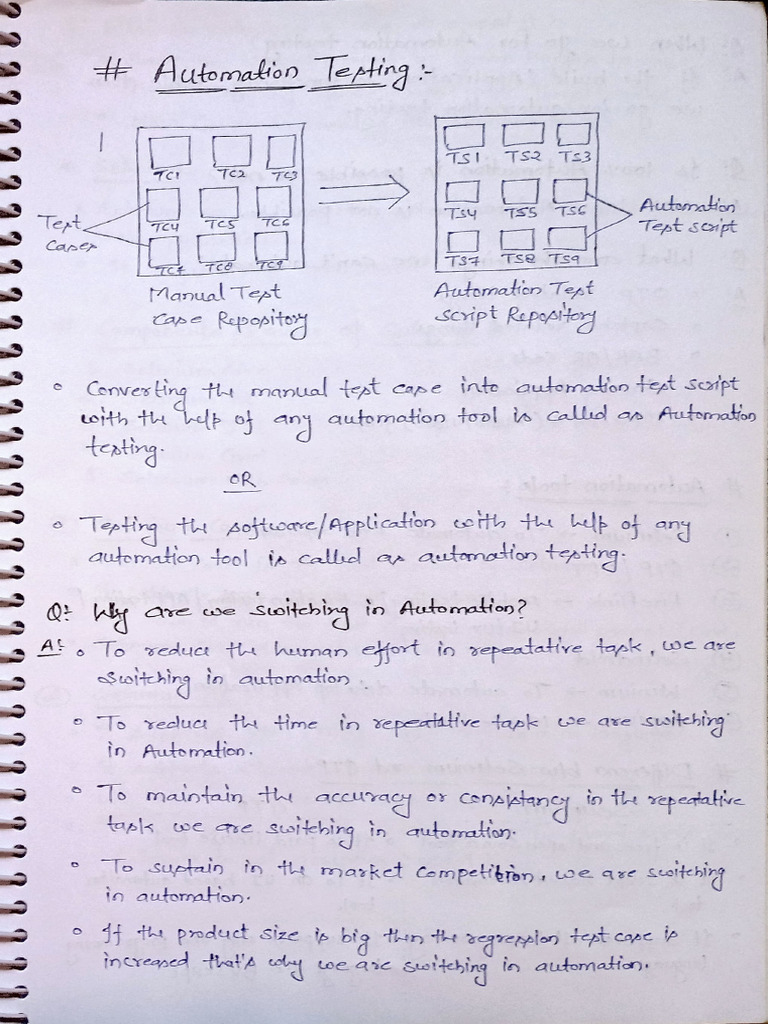 # Automation Testing :-
TC1 TC2 TC3
TC4 TC5 TC6
TC7 TC8 TC9
Test
Cases
Manual Test
Case Repository
TS1 TS2 TS3
TS4 TS5 TS6
TS7 TS8 TS9
Automation
Test script
Automation Test
Script Repository
◦ Converting the manual test case into automation test script
with the help of any automation tool is called as Automation
testing.
OR
◦ Testing the software/Application with the help of any
automation tool is called as automation testing.
Q: Why are we switching in Automation?
A: ◦ To reduce the human effort in repeatative task, we are
switching in automation
◦ To reduce the time in repeatative task we are switching
in Automation.
◦ To maintain the accuracy or consistancy in the repeatative
task we are switching in automation.
◦ To sustain in the market competition, we are switching
in automation.
◦ If the product size is big then the regression test case is
increased that's why we are switching in automation.